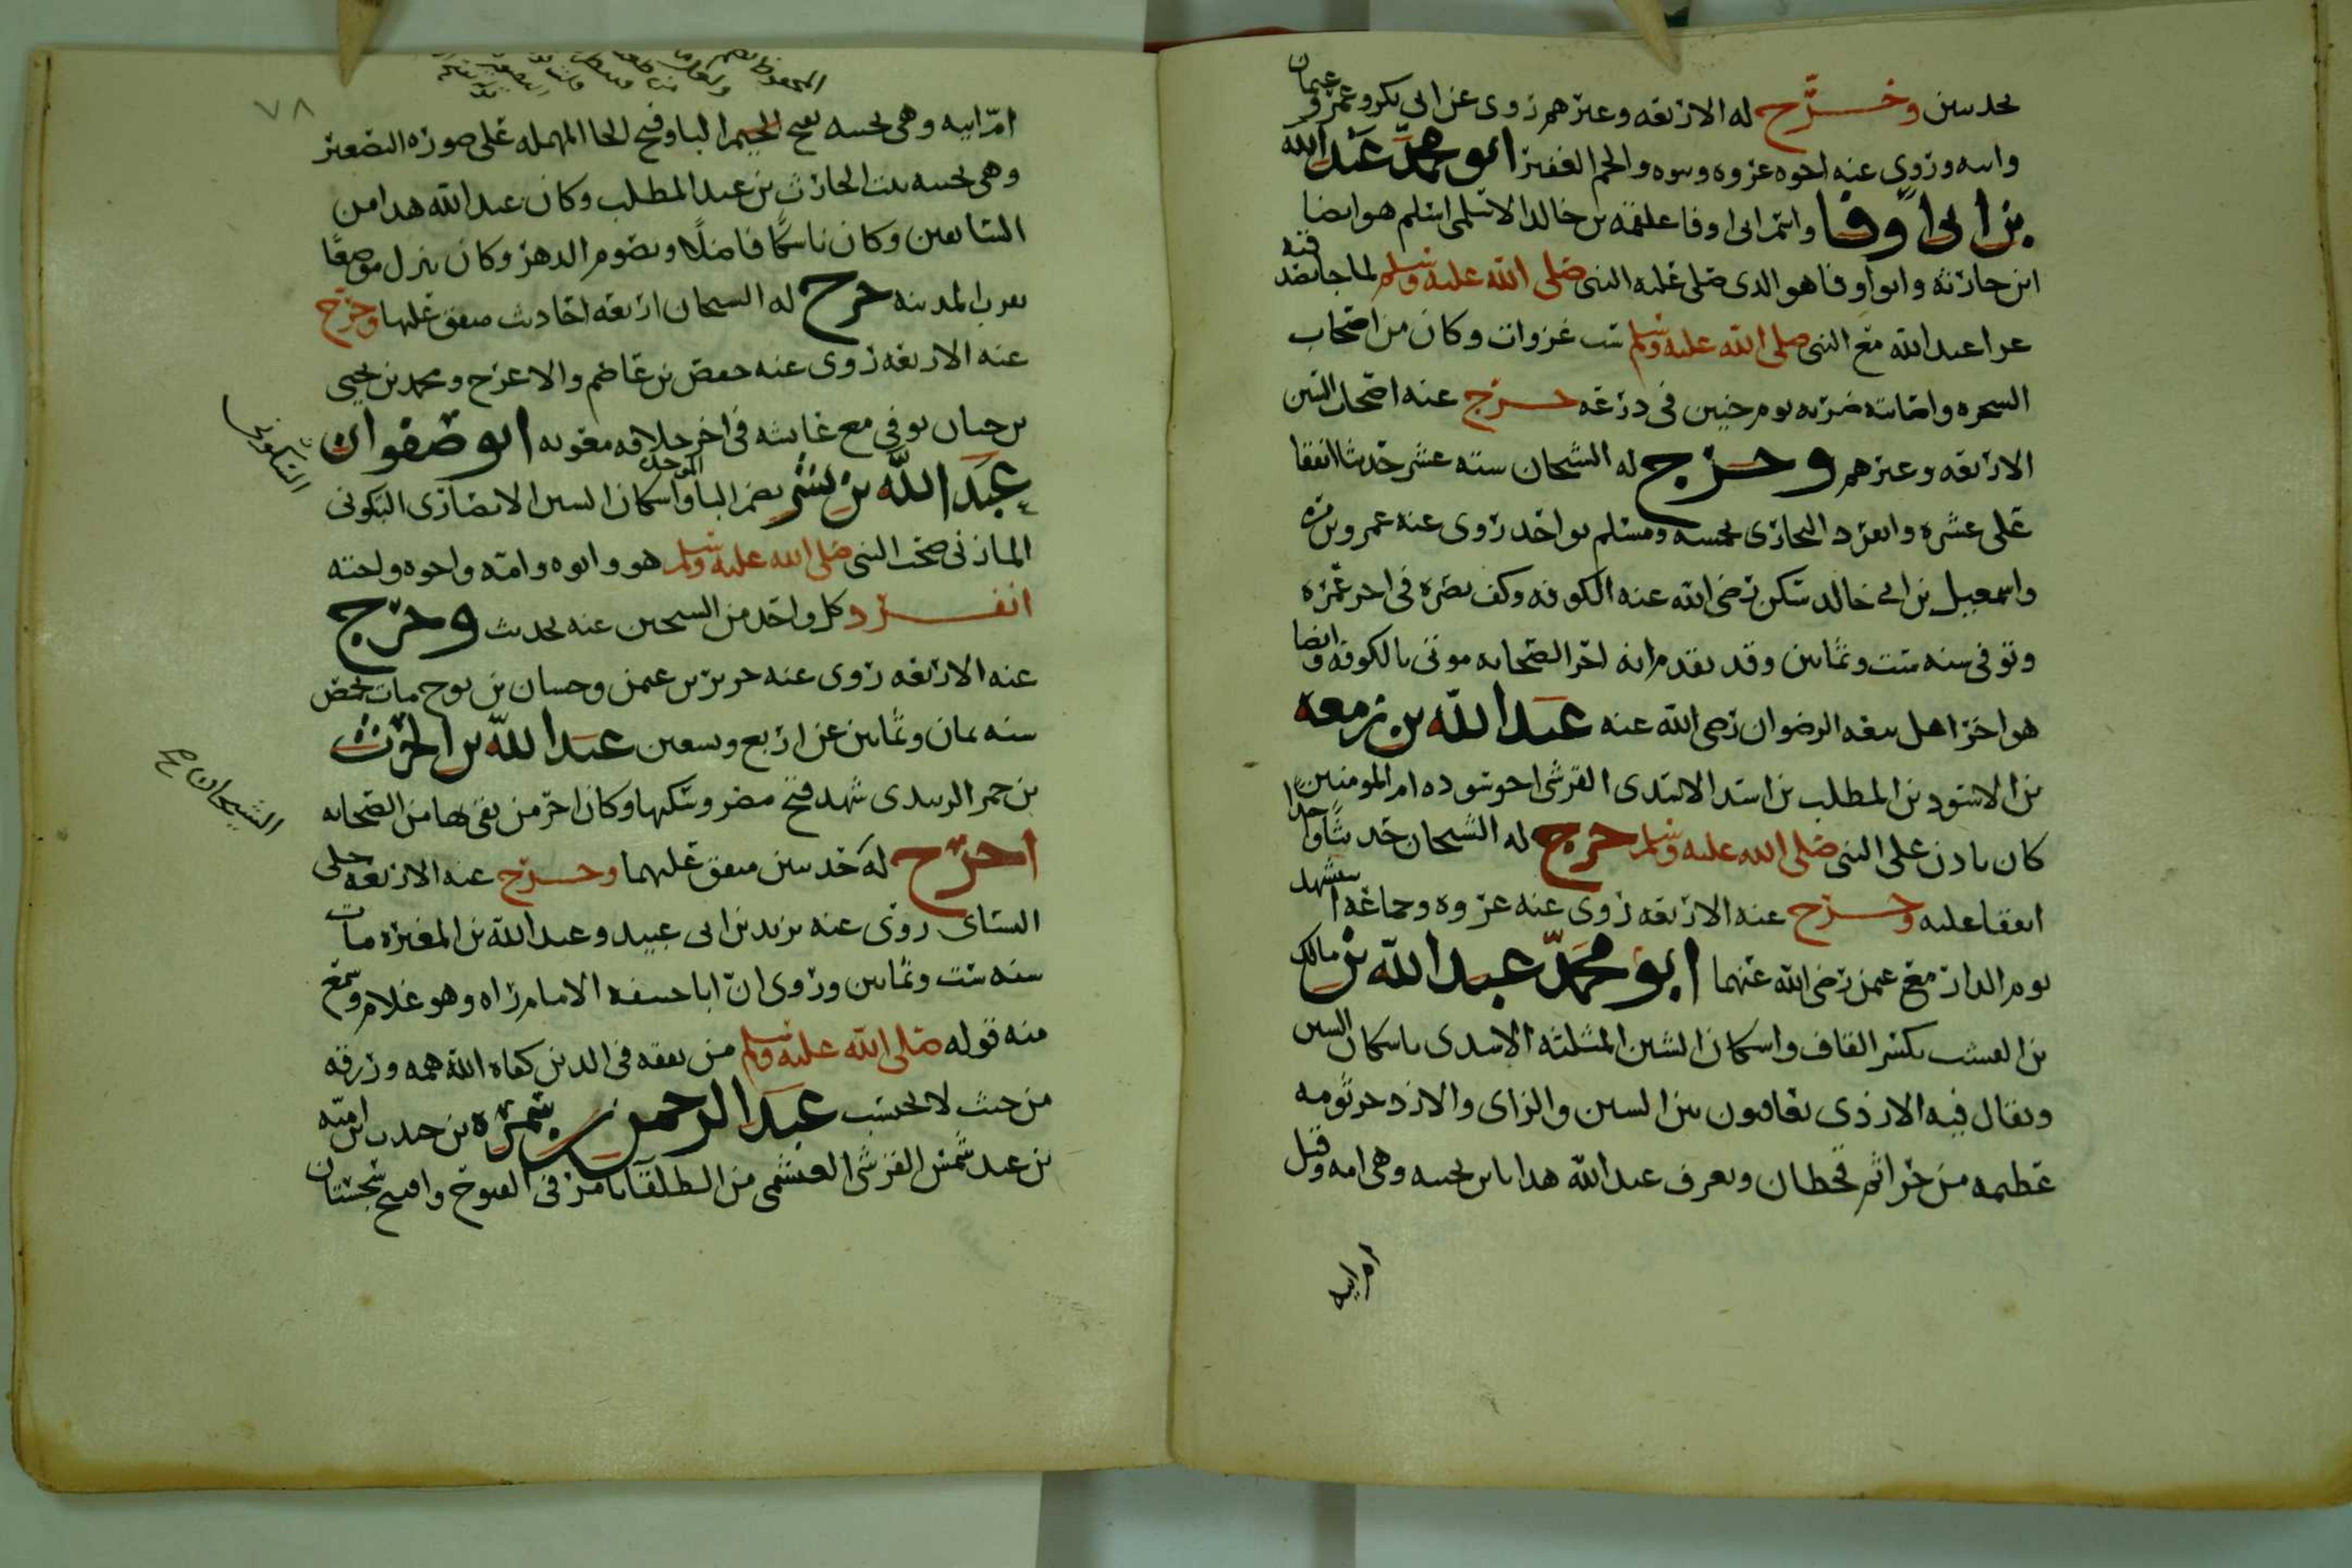 بحديثين وخرّج له الاربعه وغيرهم روى عن ابي بكر وعمر وعثمان
وابيه وروى عنه اخوه عروه وبنوه والجم الغفير ابو محمد عبد الله
بن ابي اوفا واسم ابي اوفا علقمه بن خالد الاسلمي اسلم هو ايضا
ابن حارثه وابو اوفا هو الذي صلى عليه النبي صلى الله عليه وسلم لما جا بصدقته
غزا عبد الله مع النبي صلى الله عليه وسلم ست غزوات وكان من اصحاب
الشجره واصابته ضربه يوم حنين في ذرعه خرج عنه اصحاب السنن
الاربعه وغيرهم وخرج له الشيخان سته عشر حديثا اتفقا
على عشره وانفرد البخاري بخمسه ومسلم بواحد روى عنه عمرو بن مره
واسمعيل بن ابي خالد سكن رضي الله عنه الكوفه وكف بصره في اخر عمره
وتوفي سنه ست وثمانين وقد تقدم انه اخر الصحابه موتى بالكوفه وايضا
هو اخر اهل بيعه الرضوان رضي الله عنه عبد الله بن زمعه
بن الاسود بن المطلب بن اسد الاسدي القرشي اخو سوده ام المومنين
كان ياذن على النبي صلى الله عليه وسلم خرج له الشيخان حديثا واحدا
اتفقا عليه وخرج عنه الاربعه روى عنه عروه وجماعه استشهد
يوم الدار مع عثمن رضي الله عنهما ابو محمد عبد الله بن مالك
بن القشب بكسر القاف واسكان الشين المثلثه الاسدي باسكان السين
ويقال فيه الازدي يعاقبون بين السين والزاى والازد جرثومه
عظيمه من جراثم قحطان ويعرف عبد الله هذا بابن بحينه وهي امه وقيل
ام ابيه
٧٨
ام ابيه وهي بحينه بفتح الجيم البا وفتح الحا المهمله على صوره التصغير
وهي بحينه بنت الحارث بن عبد المطلب وكان عبد الله هذا من
السابقين وكان ناسكًا فاضلًا ويصوم الدهر وكان ينزل موضعًا
بقرب المدينه خرج له الشيخان اربعه احاديث متفق عليها وخرج
عنه الاربعه روى عنه حفص بن عاصم والاعرج ومحمد بن يحيى
بن حبان توفي مع عايشه في اخر خلافه معويه ابو صفوان
عبد الله بن بسر بضم البا الموحده واسكان السين الانصاري السكوني
السكوني
المازني صحب النبي صلى الله عليه وسلم هو وابوه وامه واخوه واخته
انفرد كل واحد من الشيخين عنه بحديث وخرج
عنه الاربعه روى عنه حريز بن عثمن وحسان بن نوح مات بحمص
سنه ثمان وثمانين عن اربع وتسعين عبد الله بن الحرث
بن جمر الزبيدي شهد فتح مصر وسكنها وكان اخر من بقي بها من الصحابه
الشيخان صح
اخرج له حديثين متفق عليهما وخرج عنه الاربعه خلى
النسائي روى عنه يزيد بن ابي عبيد وعبد الله بن المغيره مات
سنه ست وثمانين وروى ان ابا حنيفه الامام راه وهو غلام وسمع
منه قوله صلى الله عليه وسلم من تفقه في الدين كفاه الله همه ورزقه
من حيث لا يحتسب عبد الرحمن بن سمره بن حبيب ابن اميه
بن عبد شمس القرشي العبشمي من الطلقا تامر في الفتوح وافتتح سجستان